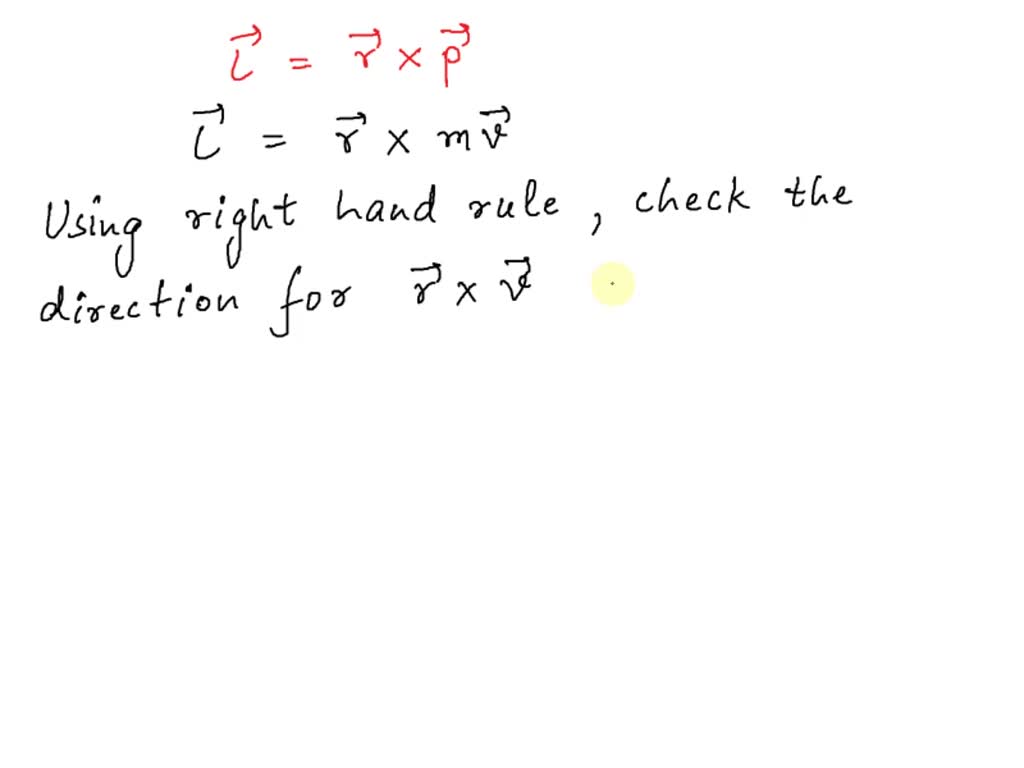 L⃗ = r⃗ × p⃗
L⃗ = r⃗ × m v⃗
Using right hand rule, check the
direction for r⃗ × v⃗